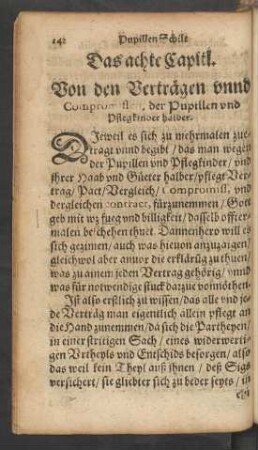 142 Pupillen Schilt
Das achte Capitl.
Von den Verträgen vnnd
Compromissen, der Pupillen vnd
Pflegkinder halber.
DJeweil es sich zu mehrmalen zue-
tragt vnnd begibt / das man wegen
der Pupillen vnd Pflegkinder / vnd
jhrer Haab vnd Güeter halber / pflegt Ver-
trag / Pact / Vergleich / Compromiss, vnd
dergleichen contract, fürzunemmen / Got
geb mit wz fueg vnd billigkeit / dasselb offter-
malen beschehen thuet. Dannenhero will es
sich gezimen / auch was hieuon anzuzaigen /
gleichwol aber anuor die erklärũg zu thuen /
was zu ainem jeden Vertrag gehörig / vnnd
was für notwendige stuck darzue vonnöthen.
Jst also erstlich zu wissen / das alle vnd je-
de Verträg man eigentlich allein pflegt an
die Hand zunemmen / da sich die Partheyen /
in einer stritigen Sach / eines widerwerti-
gen Vrtheyls vnd Entschids besorgen / also
das weil kein Theyl auß jhnen / deß Sigs
versichert / sie gliebter sich zu beder seyts / in